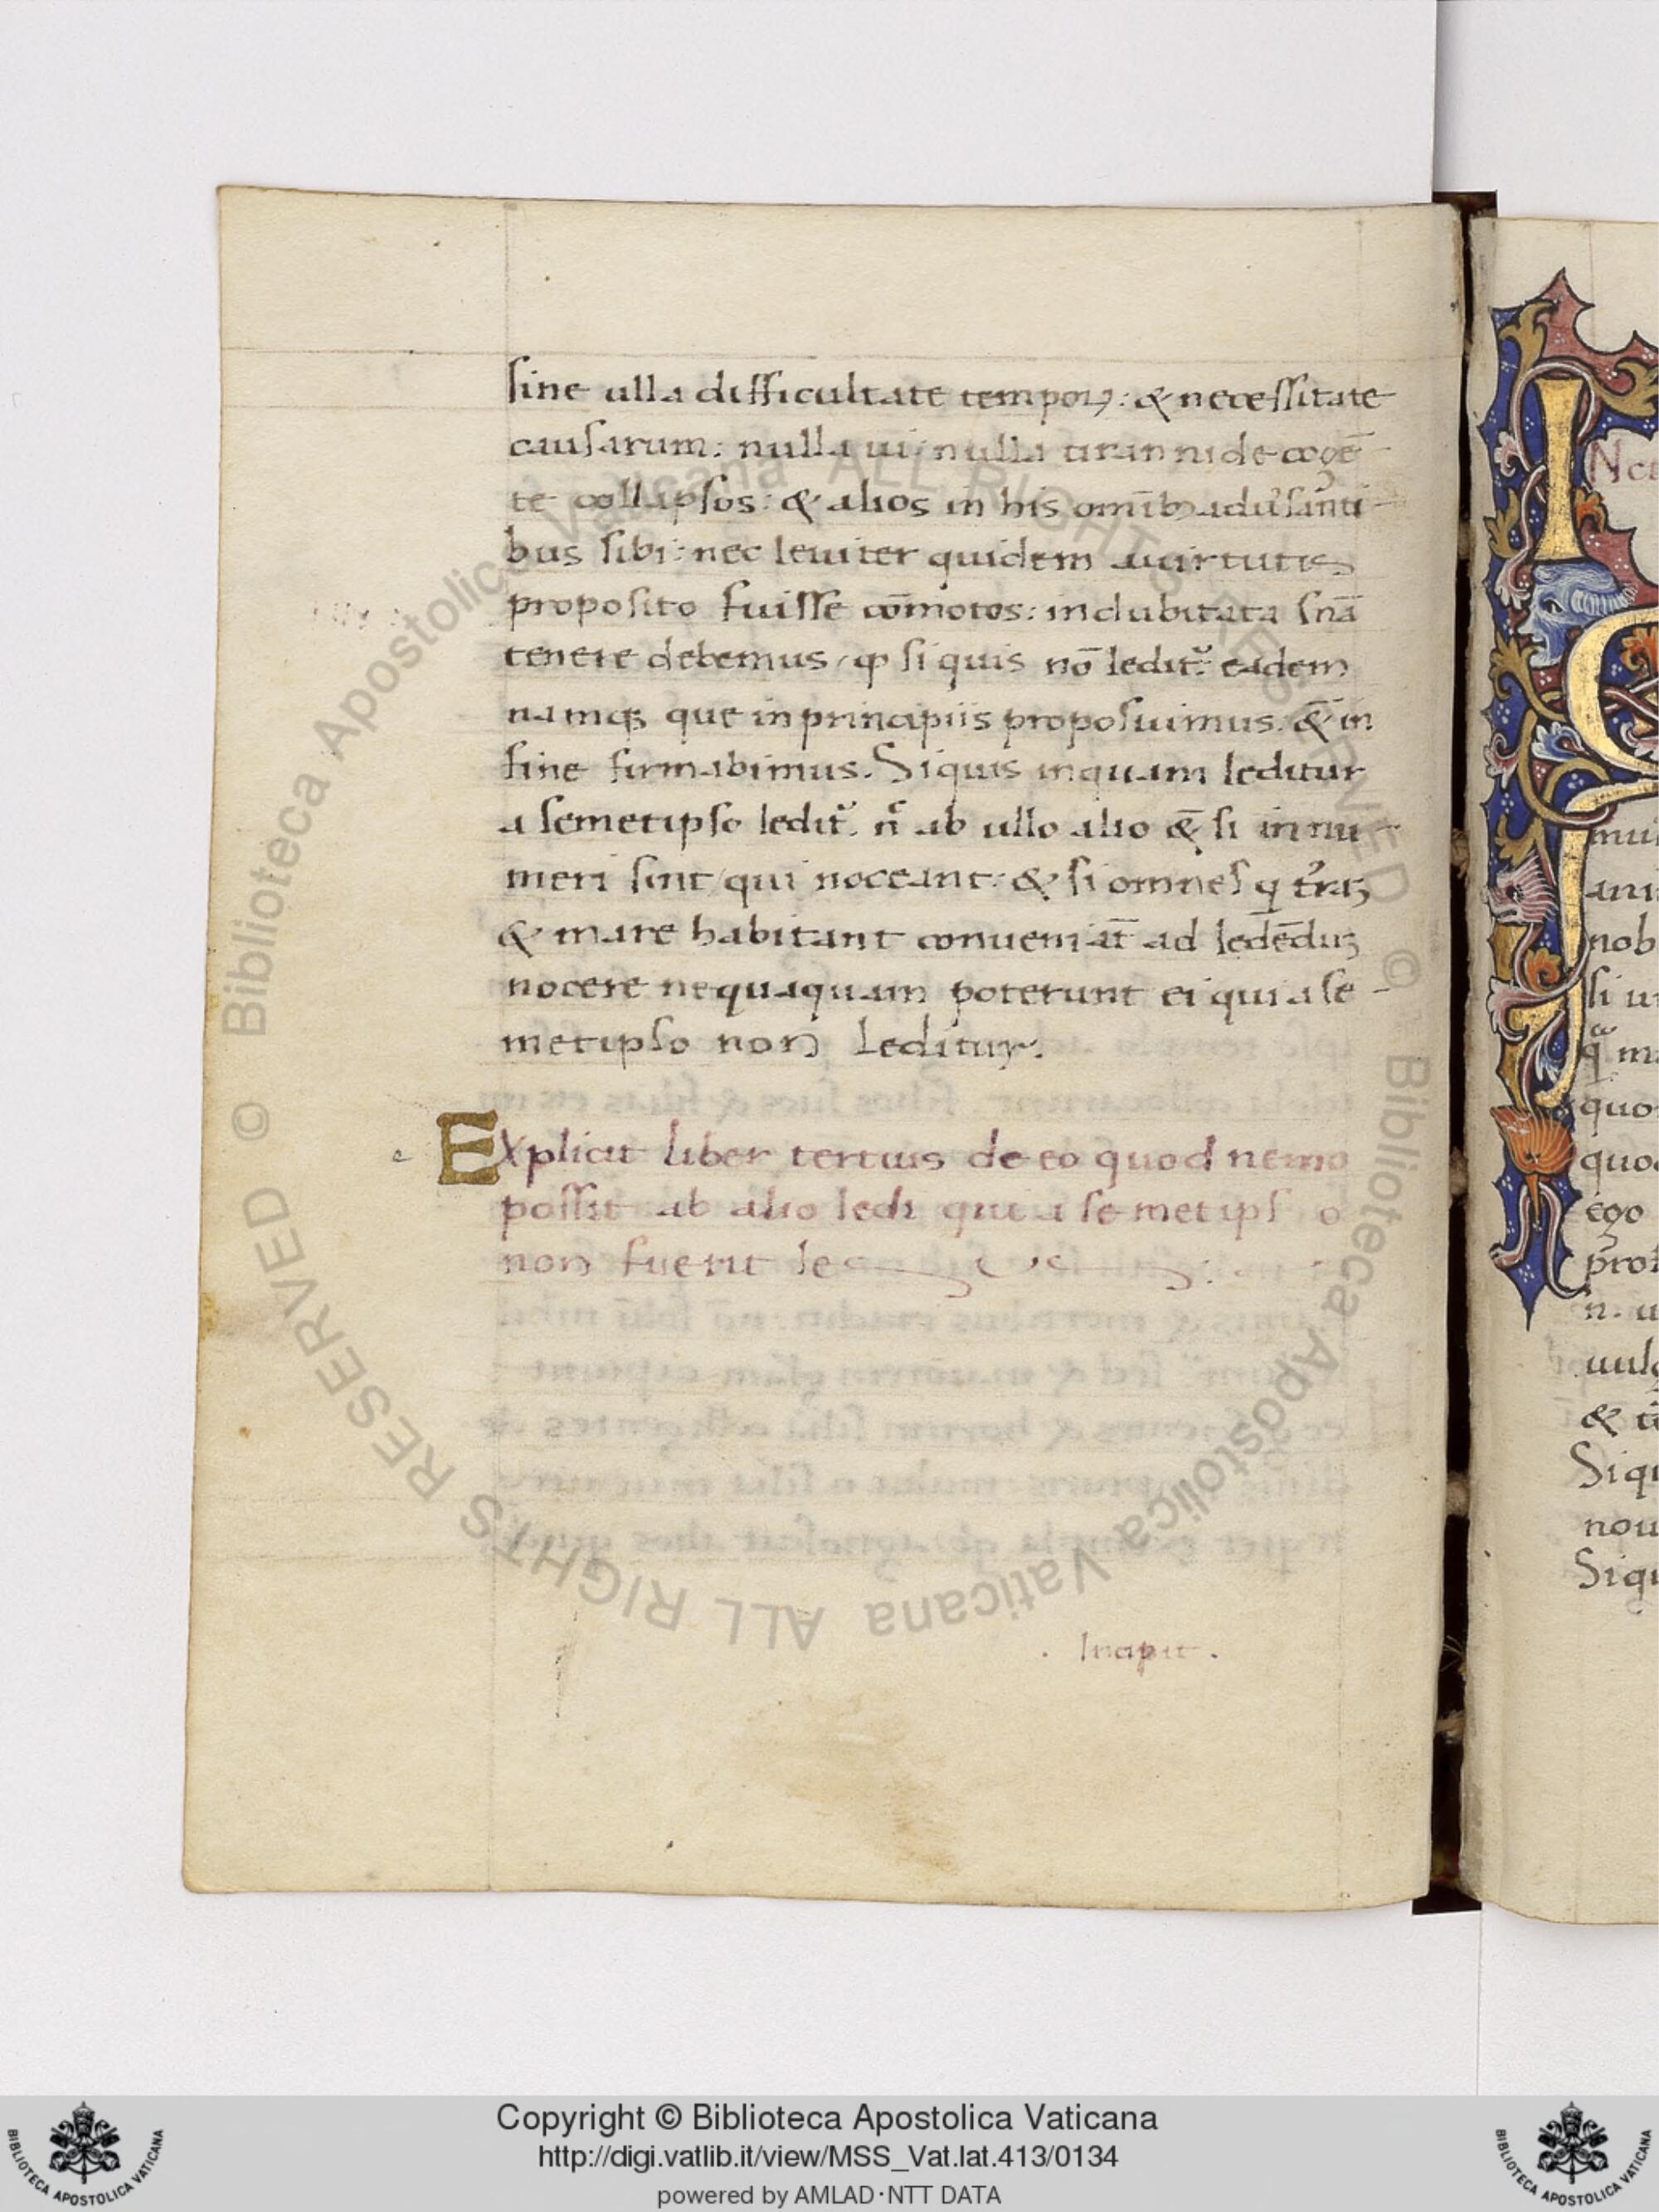 sine ulla difficultate tempoꝝ: & necessitate
causarum: nulla ui/ nulla tirannide cogē
te collapsos: & alios in his omĩbꝫ adu̓santi
bus sibi: nec leuiter quidem a uirtutis
proposito fuisse cōmotos: indubitata sn̄a
tenere debemus/ ꝙ si quis nō leditᷣ: eadem
namqꝫ que in principiis proposuimus: & in
fine firmabimus. Siquis inquam leditur
a semetipso leditᷣ. n̄ ab ullo alio &̄ si innu
meri sint/ qui noceant: & si omnes q t̓raꝫ
& mare habitant conueniāt ad ledēduꝫ
nocere nequaquam poterunt ei qui a se
metipso non leditur.
Explicit liber tertius de eo quod nemo
possit ab alio ledi qui a semetipso
non fuerit le
. Incipit .
mui
ani
nob
si u
quo
quo
ego
prof
n. u
uulg
Siqu
nou
Siqu
Copyright © Biblioteca Apostolica Vaticana
http://digi.vatlib.it/view/MSS_Vat.lat.413/0134
powered by AMLAD·NTT DATA
BIBLIOTECA APOSTOLICA VATICANA
BIBLIOTECA APOSTOLICA VATICANA
© Biblioteca Apostolica Vaticana ALL RIGHTS RESERVED © Biblioteca Apostolica Vaticana ALL RIGHTS RESERVED